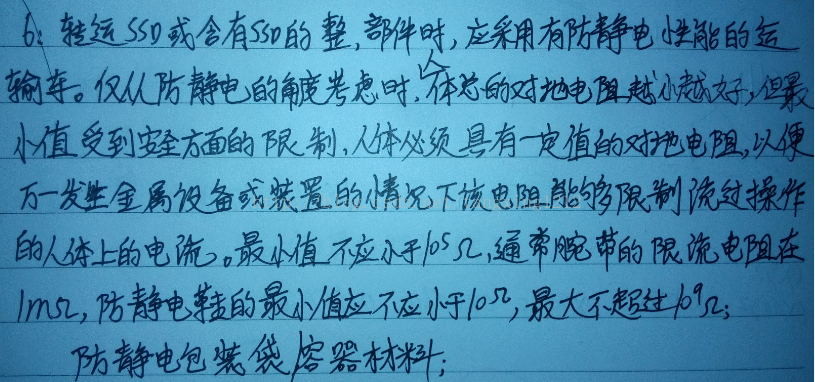 6: 转运SSD或含有SSD的整,部件时,应采用有防静电性能的运
输车。仅从防静电的角度考虑时,人体总的对地电阻越小越好,但最
小值受到安全方面的限制,人体必须具有一定值的对地电阻,以便
万一发生金属设备或装置的情况下该电阻能够限制流过操作
的人体上的电流。最小值不应小于10⁵Ω,通常腕带的限流电阻在
1mΩ,防静电鞋的最小值应不应小于10⁵Ω,最大不超过10⁹Ω;
防静电包装袋/容器材料;